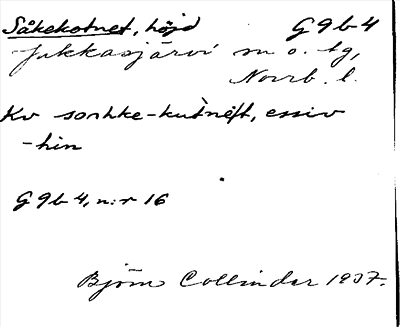 Såkekotnet, höjd G9b4
Jukkasjärvi sn o. tg,
Norrb. l.
Kv sorhke-kutnèft, essiv
-hin
G9b4, n:r 16
Björn Collinder 1937.